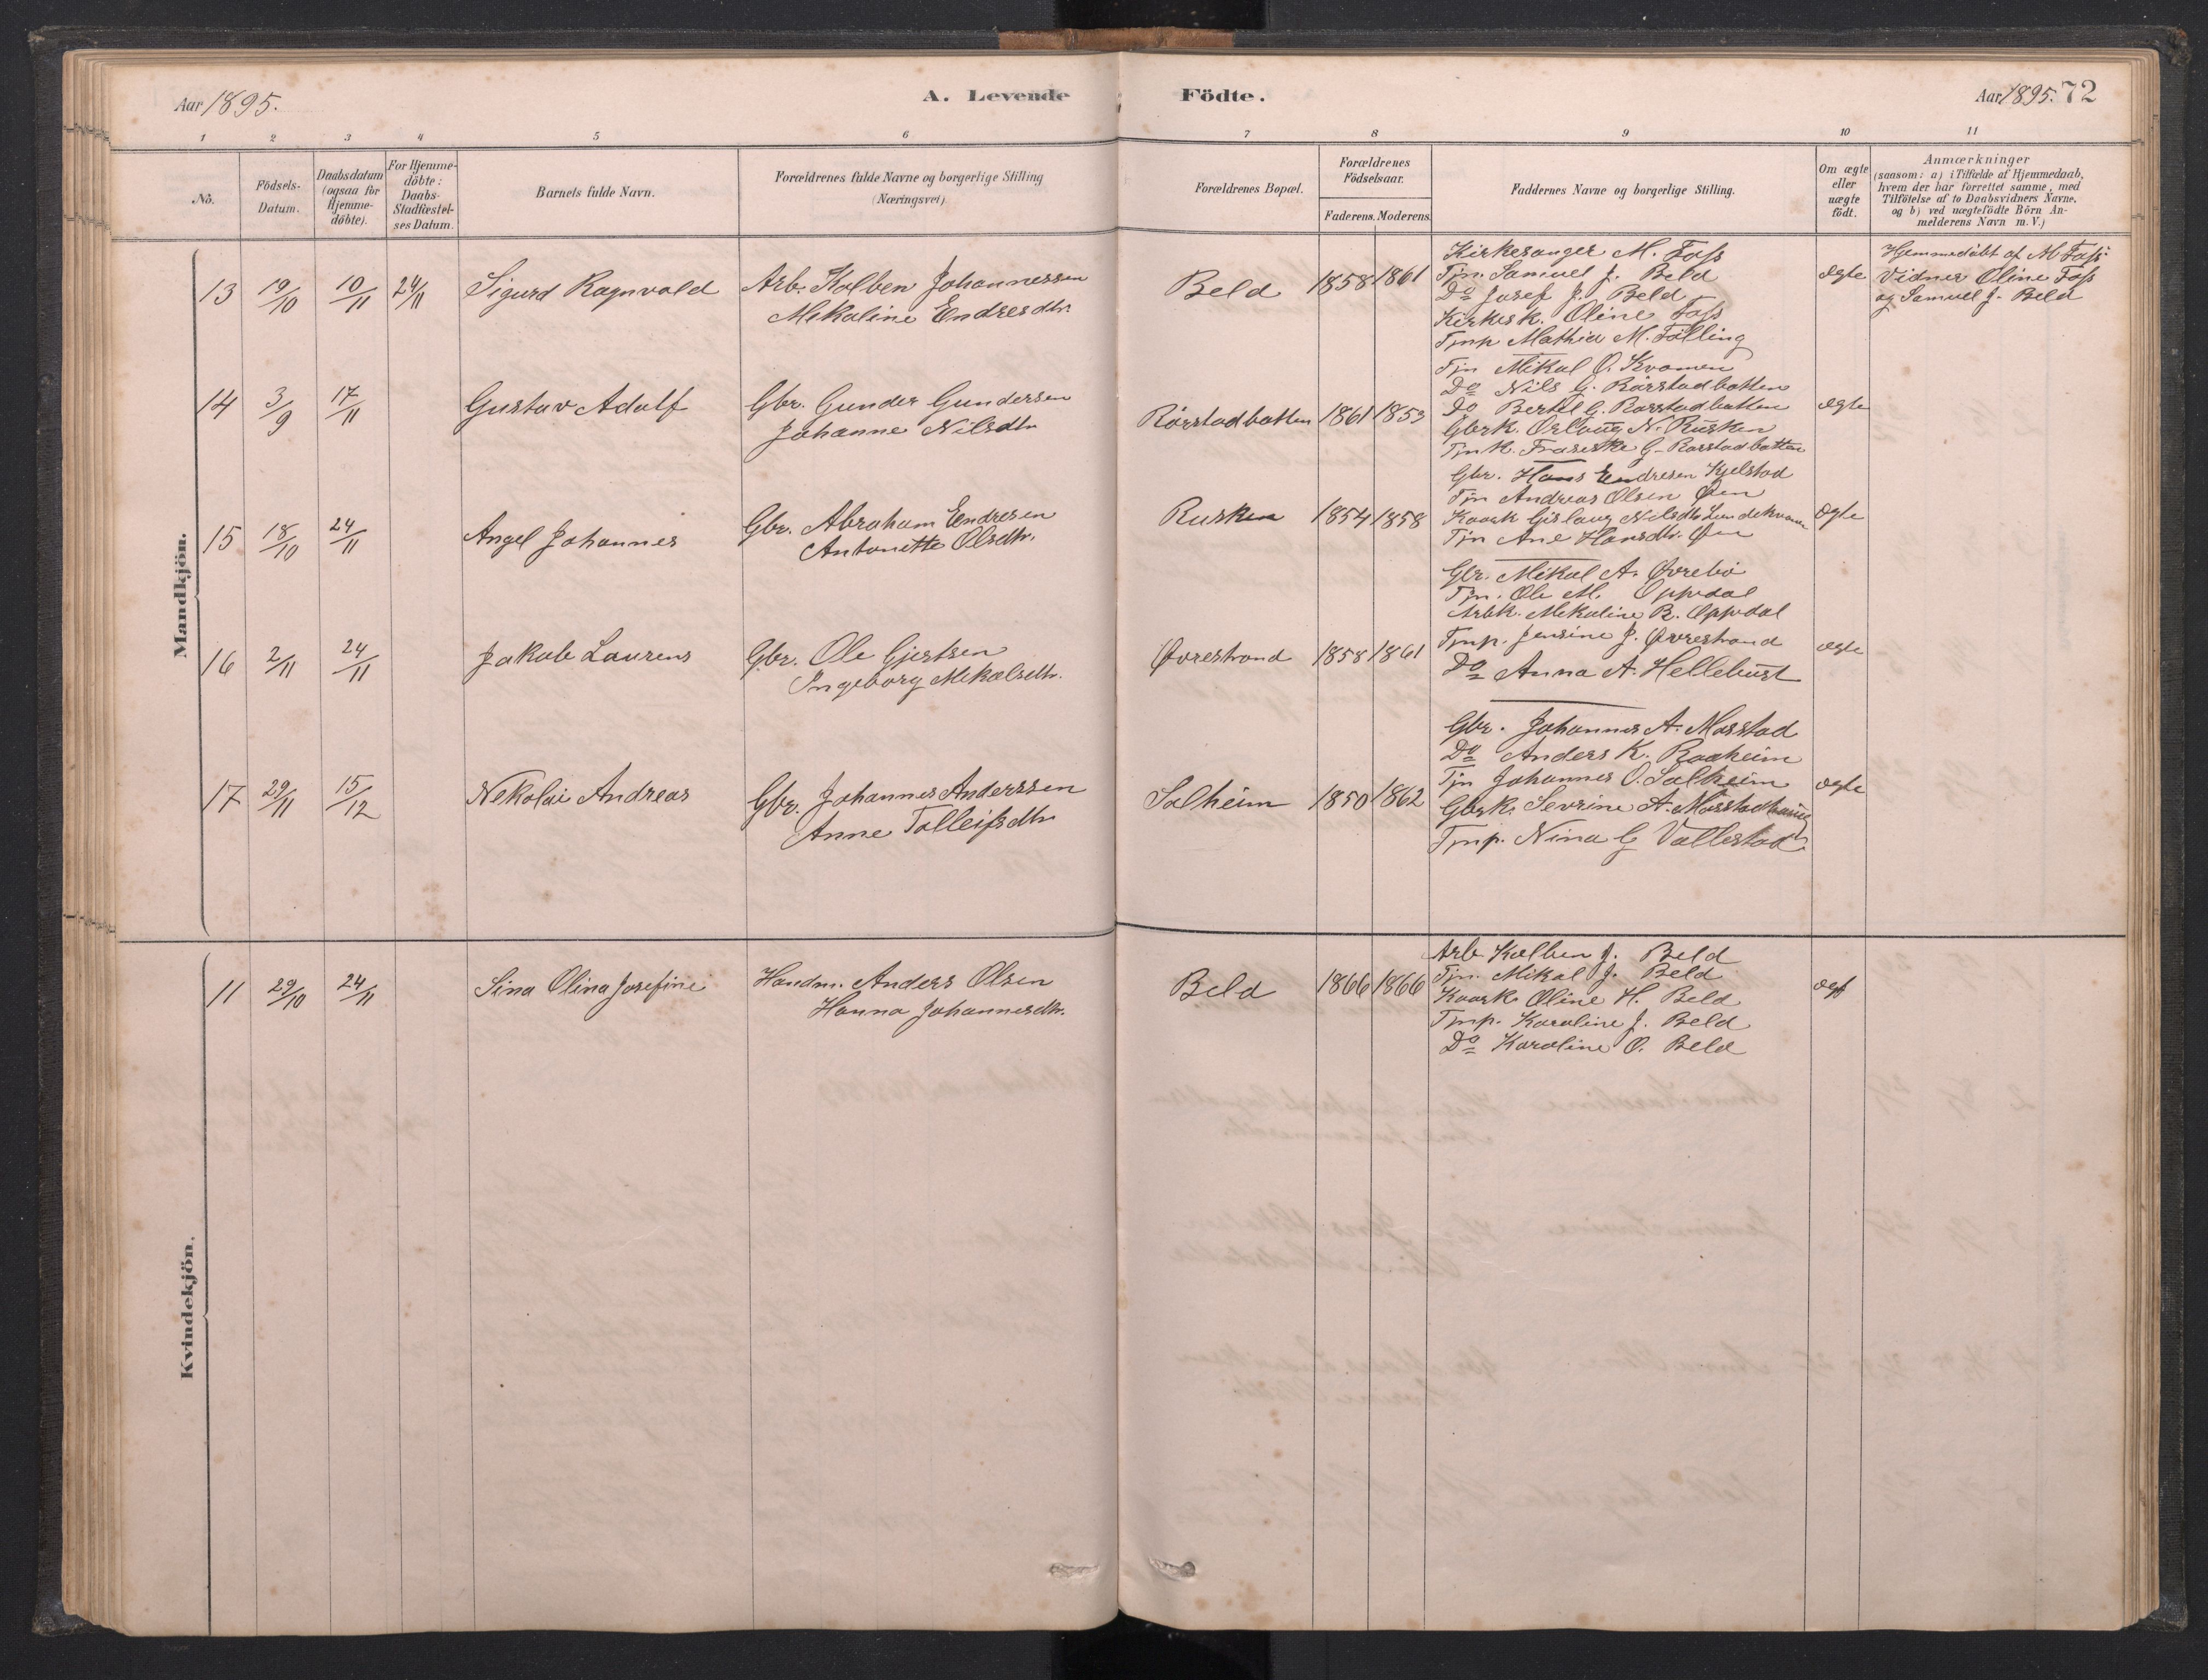 Aar 1895.
A. Levende Födte.
Aar 1895. 72
1 2 3 4 5 6 7 8 9 10 11
No.
Födsels-Datum.
Daabsdatum (ogsaa for Hjemme-döbte).
For Hjemme-döbte: Daabs-Stadfæstel-ses Datum.
Barnets fulde Navn.
Forældrenes fulde Navne og borgerlige Stilling (Næringsvei)
Forældrenes Bopæl.
Forældrenes Födselsaar.
Faderens. Moderens.
Faddernes Navne og borgerlige Stilling.
Om ægte eller uægte födt.
Anmærkninger
(saasom: a) i Tilfælde af Hjemmedaab,
hvem der har forrettet samme, med
Tilföielse af to Daabsvidners Navne,
og b) ved uægtefödte Börn An-
melderens Navn m. V.)
Mandkjön.
13 19/10 10/11 24/11 Sigurd Ragnvald
Arb. Kolben Johannessen
Mekaline Endresdtr.
Beld 1858 1861
Kirkesanger M. Foss
Tjn. Samuel J. Beld
Do Josef J. Beld
Kirkesk. Oline Foss
Tjnp Mathia M. Tölling
ægte
Hjemmedöbt af M Foss:
Vidner Oline Foss
og Samuel J. Beld
14 3/9 17/11 Gustav Adolf
Gbr. Gunder Gundersen
Johanne Nilsdtr
Rörstadbotten 1861 1853
Tjn Mikal O. Kvamen
Do Nils G. Rörstadbotten
Do Bertel G. Rorstadbotten
Gbrk. Orlaug N. Rusken
Tjnk. G. Rorstadbotten
ægte
15 18/10 24/11 Angel Johannes
Gbr. Abraham Endresen
Antonette Olsdtr.
Rusken 1854 1858
Gbr. Hans Endresen Kjelstad
Tjn Andreas Olsen Øen
Kaark Gislaug Nilsdtr
Tjn Ane Hansdtr. Øen
Ægte
16 2/11 24/11 Jakob Laurens
Gbr. Ole Gjertsen
Ingeborg Mekalsdtr.
Øvrestrand 1858 1861
Gbr. Mikal A. Øvrebö
Tjn. Ole M. Oppedal
Arbk. Mekaline R. Oppedal
Tjnp. Jensine J. Øvrestrand
Do Anna A. Hellebust
ægte
17 29/11 15/12 Nekolai Andreas
Gbr. Johannes Anderssen
Anne Tolleifsdtr
Solheim 1850 1862
Gbr. Johannes A. Morstad
Do Anders K. Raaheim
Tjn Johannes O. Solheim
Gbrk. Severine A.
Tjnp. Nina G Vallestad.
ægte
Kvindekjön.
11 29/10 24/11 Sina Olina Josefine
Handm. Anders Olsen
Hanna Johannesdtr.
Beld 1866 1866
Arb Kolben J. Beld
Tjn. Mikal J. Beld
Kaark Oline H. Beld
Tjnp. Karoline J. Beld
Do Karoline O. Beld
ægt